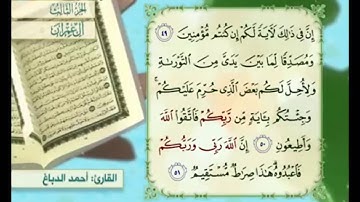 الجزء الثالث
آل عمران
إِنَّ فِي ذَٰلِكَ لَآيَةً لَّكُمْ إِن كُنتُم مُّؤْمِنِينَ ٤٩
وَمُصَدِّقًا لِّمَا بَيْنَ يَدَىَّ مِنَ التَّوْرَىٰةِ
وَلِأُحِلَّ لَكُم بَعْضَ الَّذِى حُرِّمَ عَلَيْكُمْ ۚ
وَجِئْتُكُم بِآيَةٍ مِّن رَّبِّكُمْ فَاتَّقُوا اللَّهَ
وَأَطِيعُونِ ٥٠ إِنَّ اللَّهَ رَبِّى وَرَبُّكُمْ
فَاعْبُدُوهُ ۗ هَٰذَا صِرَاطٌ مُّسْتَقِيمٌ ٥١
القارئ: أحمد الدباغ